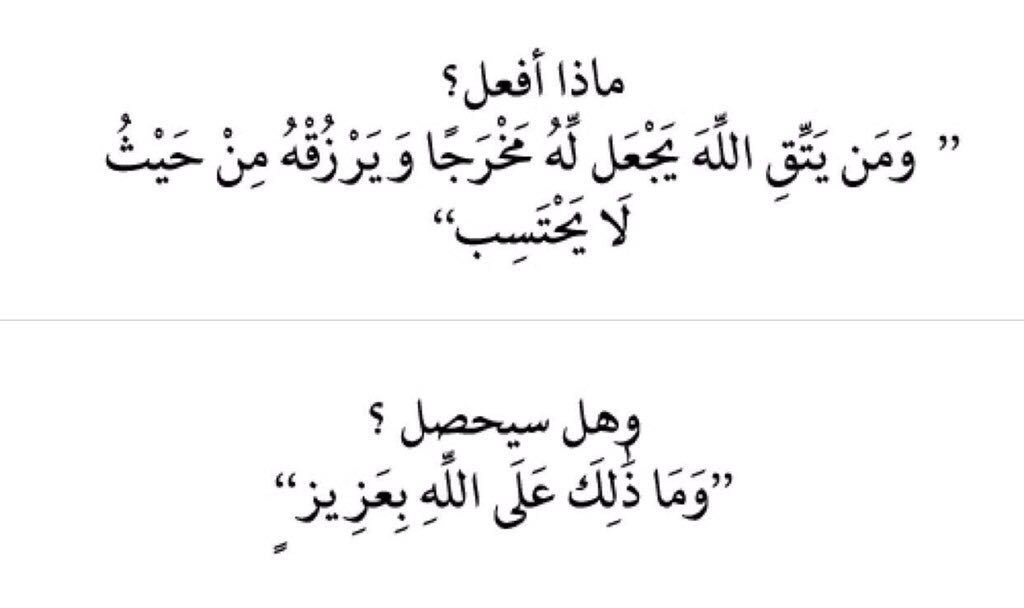 ماذا أفعل؟
” وَمَن يَتَّقِ اللَّهَ يَجْعَل لَّهُ مَخْرَجًا وَ يَرْزُقْهُ مِنْ حَيْثُ
لَا يَحْتَسِب“
وهل سيحصل ؟
”وَمَا ذَٰلِكَ عَلَى اللَّهِ بِعَزِيز“ٍ